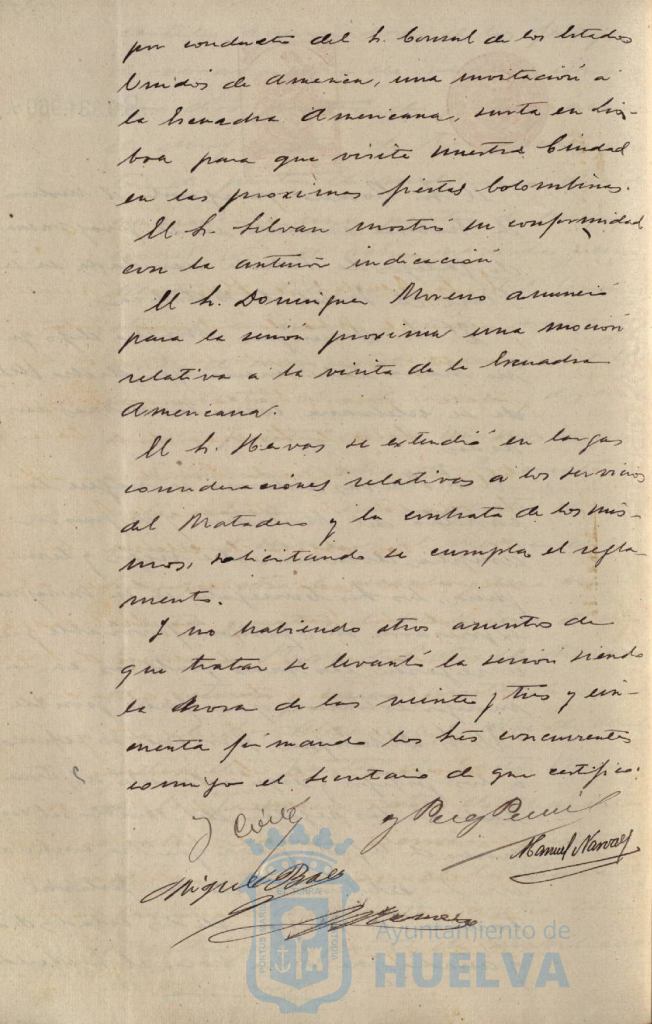 por conducto del Sr. Consul de los Estados
Unidos de America, una invitación a
la Escuadra Americana, surta en Lis-
boa para que visite nuestra Ciudad
en las proximas fiestas Colombinas.
El Sr. Silvan mostró su conformidad
con la anterior indicación
El Sr. Dominguez Moreno anunció
para la sesión proxima una moción
relativa a la visita de la Escuadra
Americana.
El Sr. se extendió en largas
consideraciones relativas a los servicios
del Matadero y la contrata de los mis-
mos, solicitando se cumpla el regla-
mento.
Y no habiendo otros asuntos de
que tratar se levantó la sesión siendo
la hora de las veinte y tres y cin-
cuenta firmando los Sres concurrentes
conmigo el Secretario de que certifico.
Manuel
Miguel
PORTUS MARIS
Ayuntamiento de
HUELVA